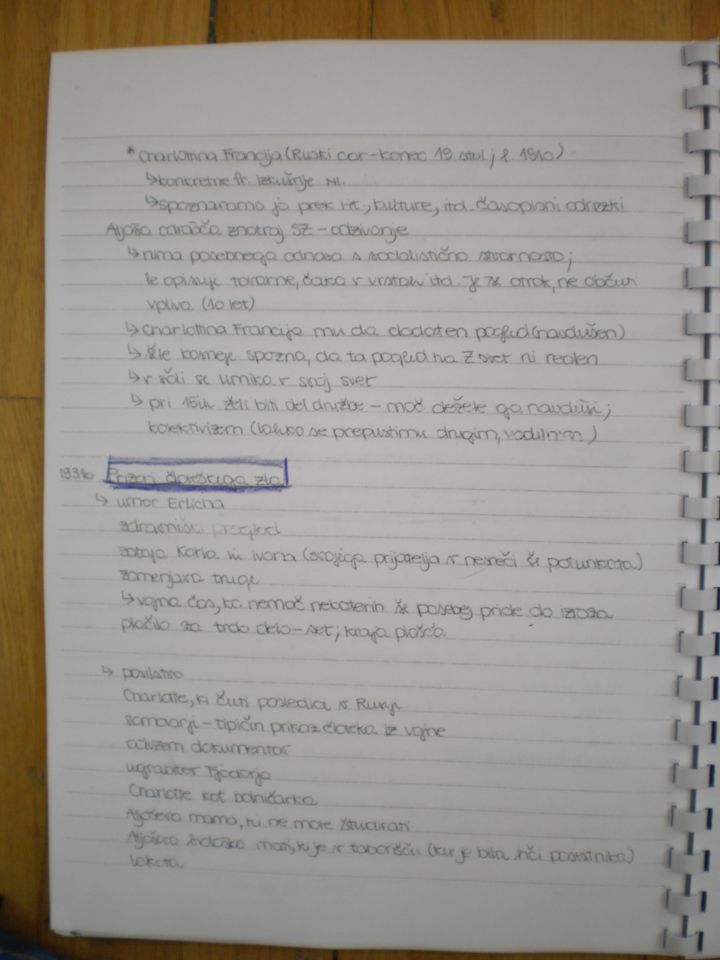 * Charlottina Francija (Ruski car - konec 19. stol.; l. 1910)
↳ konkretne fr. izkušnje ni.
↳ spoznavamo jo prek lit., kulture, itd. časopisni odrezki
Aljoša odrašča znotraj SZ - odzivanje
↳ nima posebnega odnosa s socialistično stvarnostjo;
le opisuje tovarne, čaka v vrstah itd. Je še otrok, ne občuti
vpliva (10 let)
↳ Charlottina Francija mu da dodaten pogled (navdušen)
↳ šele kasneje spozna, da ta pogled na Z svet ni realen
↳ v šoli se umika v svoj svet
↳ pri 15ih želi biti del družbe - moč dežele ga navduši;
kolektivizem (lahko se prepustimo drugim, vodilnim)
Prizori človeškega zla
↳ umor Erlicha
zdravniški pregledi
izdaja Karla in Ivana (svojega prijatelja v nesreči še potunkata)
zamenjava truge
↳ vojna čas, ko nemoč nekaterih še posebej pride do izraza
plačilo za trdo delo - set; kraja plošča
↳ posilstvo
Charlotte, ki čuti posledice v Rusiji
samovarji - tipičen prikaz človeka iz vojne
odvzem dokumentov
ugrabitev Fjodorja
Charlotte kot bolničarka
Aljoševa mama, ki ne more študirati
Aljoševa biološka mati, ki je v taborišču (ker je bila hči)
lakota